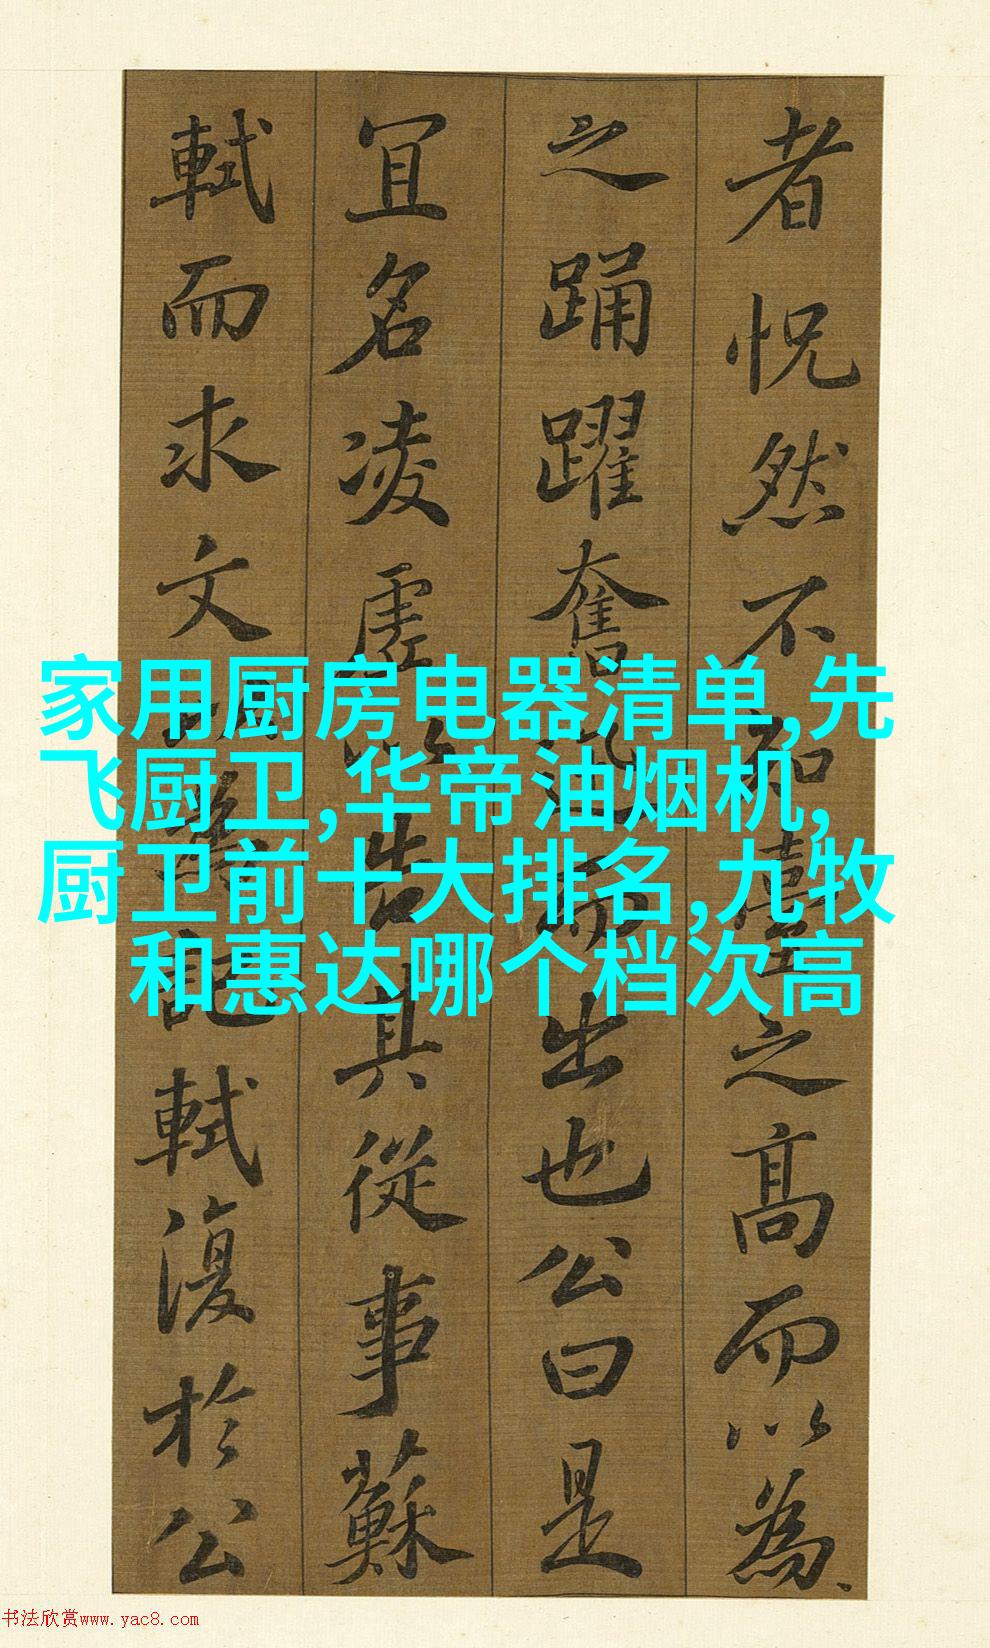 者怳然不知臺之高而以為
之踊躍奮迅而出也公曰是
宜名凌虛以告其從事蘇
軾而求文以為記軾復於公
家用厨房电器清单,先
飞厨卫,华帝油烟机,
厨卫前十大排名,九牧
和惠达哪个档次高
书法欣赏www.yac8.com